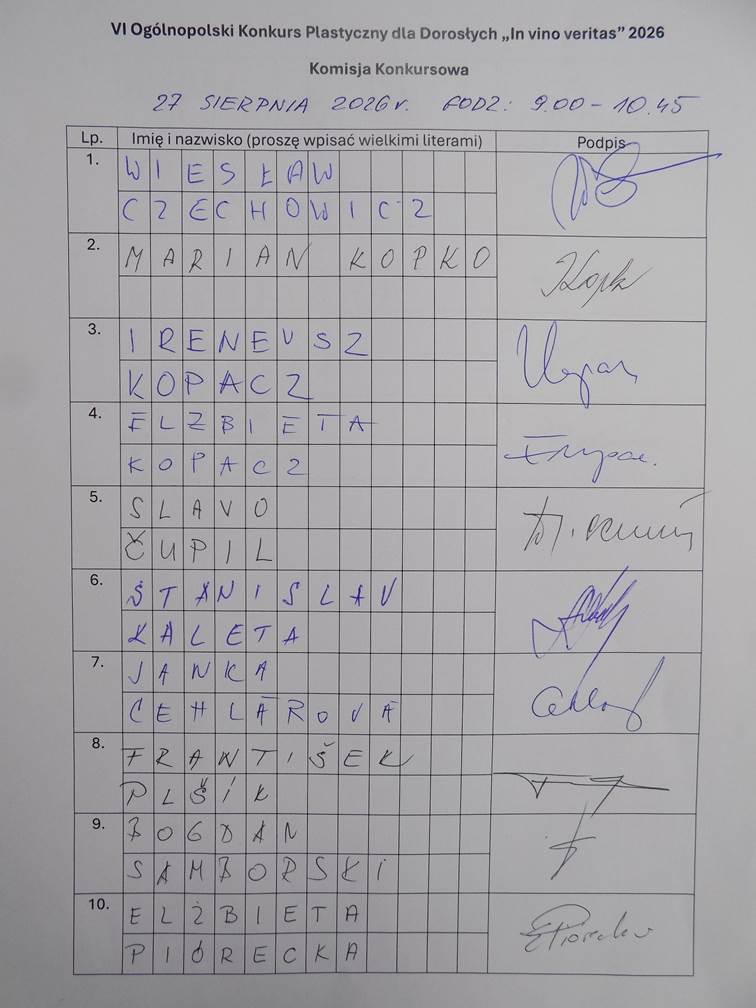 VI Ogólnopolski Konkurs Plastyczny dla Dorosłych „In vino veritas” 2026
Komisja Konkursowa
27 SIERPNIA 2026 r. GODZ: 9.00 - 10.45
Lp. Imię i nazwisko (proszę wpisać wielkimi literami) Podpis
1. WIESŁAW
CZECHOWICZ
2. MARIAN KOPKO
3. IRENEUSZ
KOPACZ
4. ELŻBIETA
KOPACZ
5. SLAVO
ČUPIL
6. STANISLAV
KALETA
7. JANKA
CEHLÁROVÁ
8. FRANTIŠEK
PLŠÍK
9. BOGDAN
SAMBORSKI
10. ELŻBIETA
PIÓRECKA